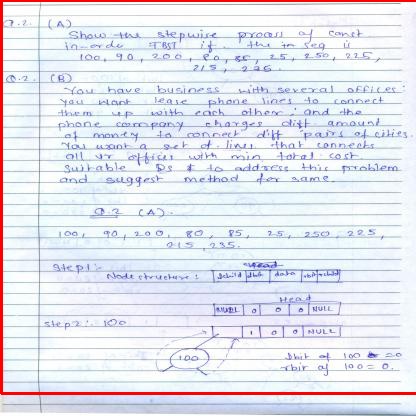 Q.2. (A)
Show the stepwise process of const
in-orde TBST if the in seq is
100, 90, 200, 80, 85, 25, 250, 225,
215, 235.
Q.2. (B)
You have business with several offices:
You want lease phone lines to connect
them up with each other; and the
phone company charges diff amount
of money to connect diff pairs of cities.
You want a set of lines that connects
all yr offices with min total cost.
Suitable Ds & to address this problem
and suggest method for same.
Q.2 (A).
100, 90, 200, 80, 85, 25, 250, 225,
215, 235.
Step 1:- Head
Node structure: lchild lbit data rbit rchild
Head
NULL 0 0 0 NULL
step 2:- 100
1 0 0 NULL
100
lbit of 100 = 0
rbit of 100 = 0.